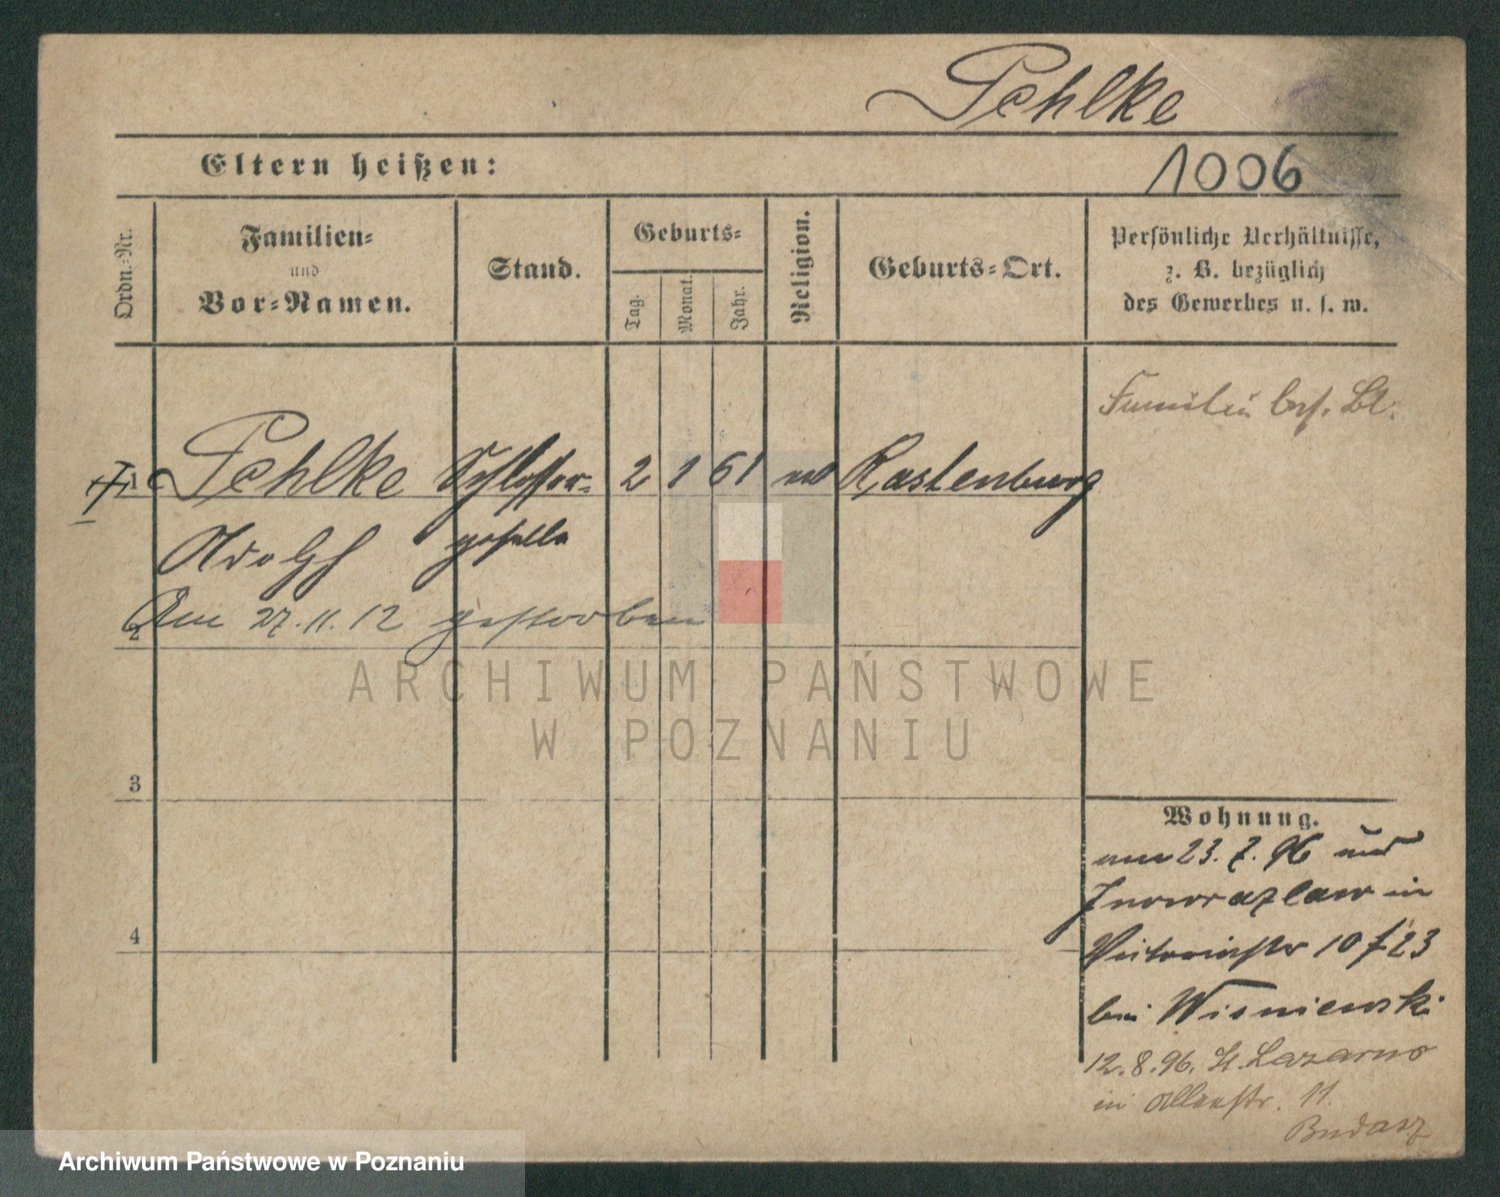 Pehlke
Eltern heißen:
1006
Ordn.-Nr.
Familien-
und
Vor-Namen.
Stand.
Geburts-
Tag.
Monat.
Jahr.
Religion.
Geburts-Ort.
Persönliche Verhältnisse,
z. B. bezüglich
des Gewerbes u. s. w.
Familie bes. Bl.
Pehlke Schlosser- 2 1 61 Rastenburg
Adolph geselle
Am 27.11.12 gestorben
2
ARCHIWUM PAŃSTWOWE
W POZNANIU
3
4
Wohnung.
am 23. 7. 96 aus
Inowrazlaw in
Victoriastr 10 f 23
bei Wisniewski
12.8.96. St. Lazarus
in Alleestr. 11.
Budasz
Archiwum Państwowe w Poznaniu